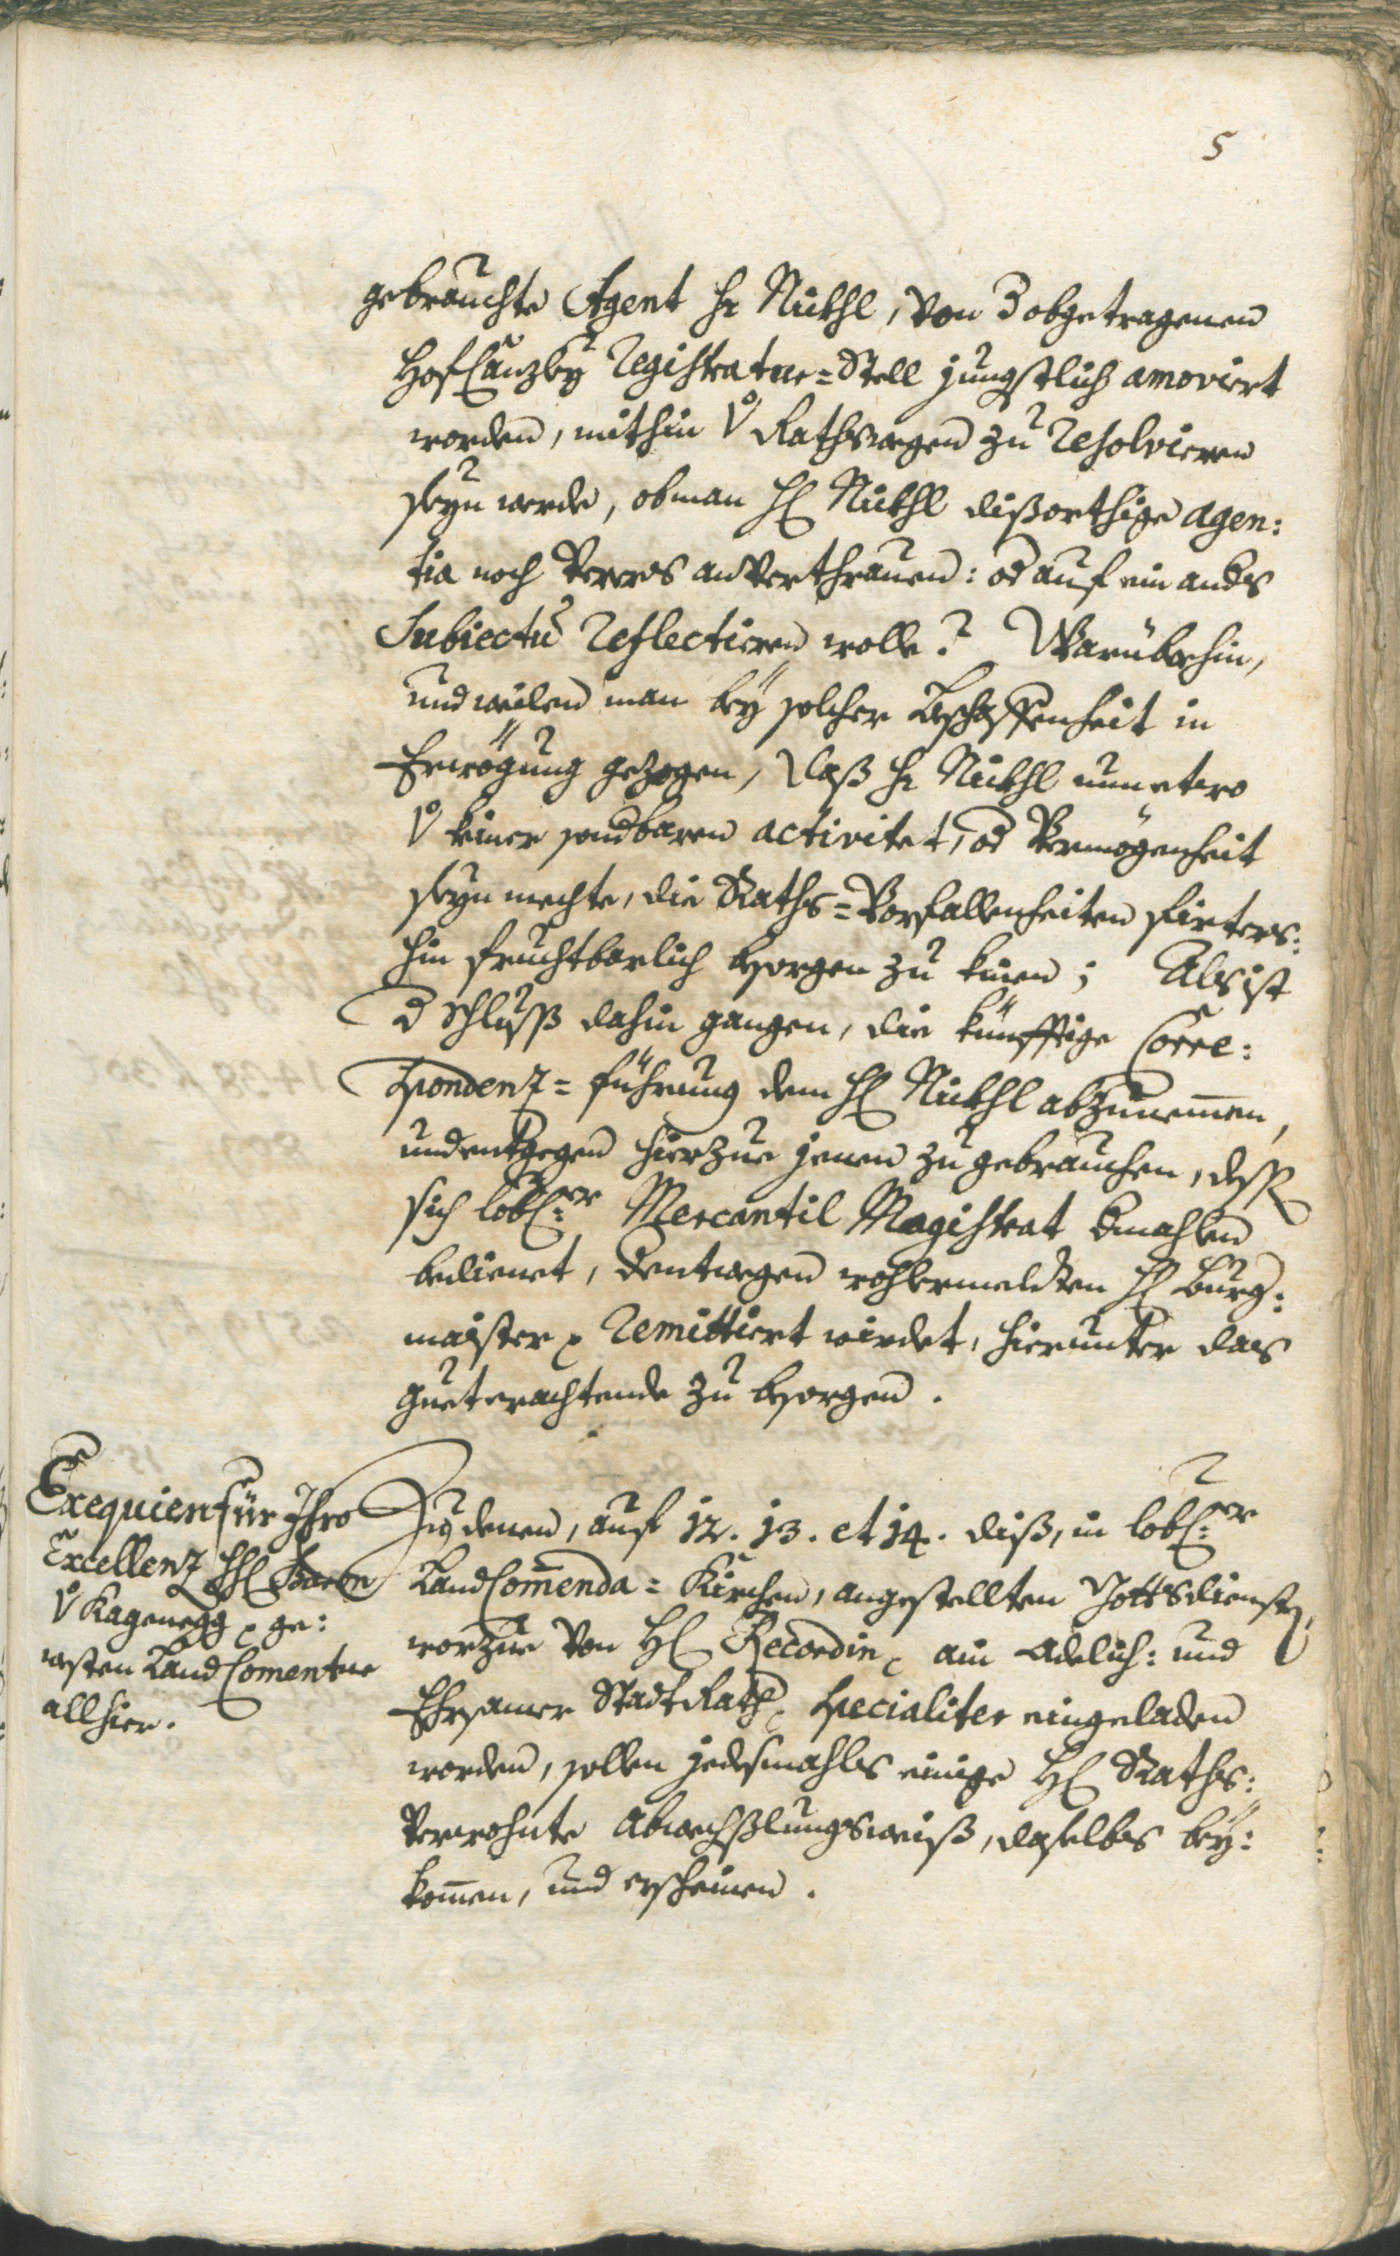 5
gebrauchte Agent Hr Nickhl, von obgetragenen
HofCanzley Registratur=Stell jungstlich amoviert
worden, mithin v Rathswegen zu resolvieren
seyn werde, ob man H Nickhl dißorthige Agen:
tia noch ferers anverthrauen: od auf ein anders
Subiectu reflectieren wolle? Warüberhin,
und weilen man bey solcher Beschaffenheit in
Erwögung gezogen, daß Hr Nickhl nunetwo
v keiner sondbaren activitet, od Vermögenheit
seyn mechte, die Raths=Vorfallenheiten firters:
hin fruchtbarlich besorgen zu kinen; Als ist
d schluss dahin gangen, die künfftige Corre:
spondenz=führung dem H Nickhl abzunemen,
und entgegen hierzue jenen zu gebrauchen, dessen
sich lobl:er Mercantil Magistrat dmahlen
bedienet, dentwegen wohlermeldten H Burg:
maister remittiert wirdet, hierunter das
guet erachtende zu besorgen.
Exequien für Ihro
Excellenz H Baron
v Kagenegg ge:
westen LandComentur
allhier.
Zu denen, auf 12. 13. et 14. diß, in lobl:er
LandComenda=Kirchen, angestellten Gottsdiensten,
worzue von H Recordin ain Adelich: und
Ehrsamer StadtRath specialiter eingeladen
worden, sollen jedesmahls einige H Raths:
Verwohnte Abwechßlungsweiß, daselbs bey:
komen, und erscheinen.